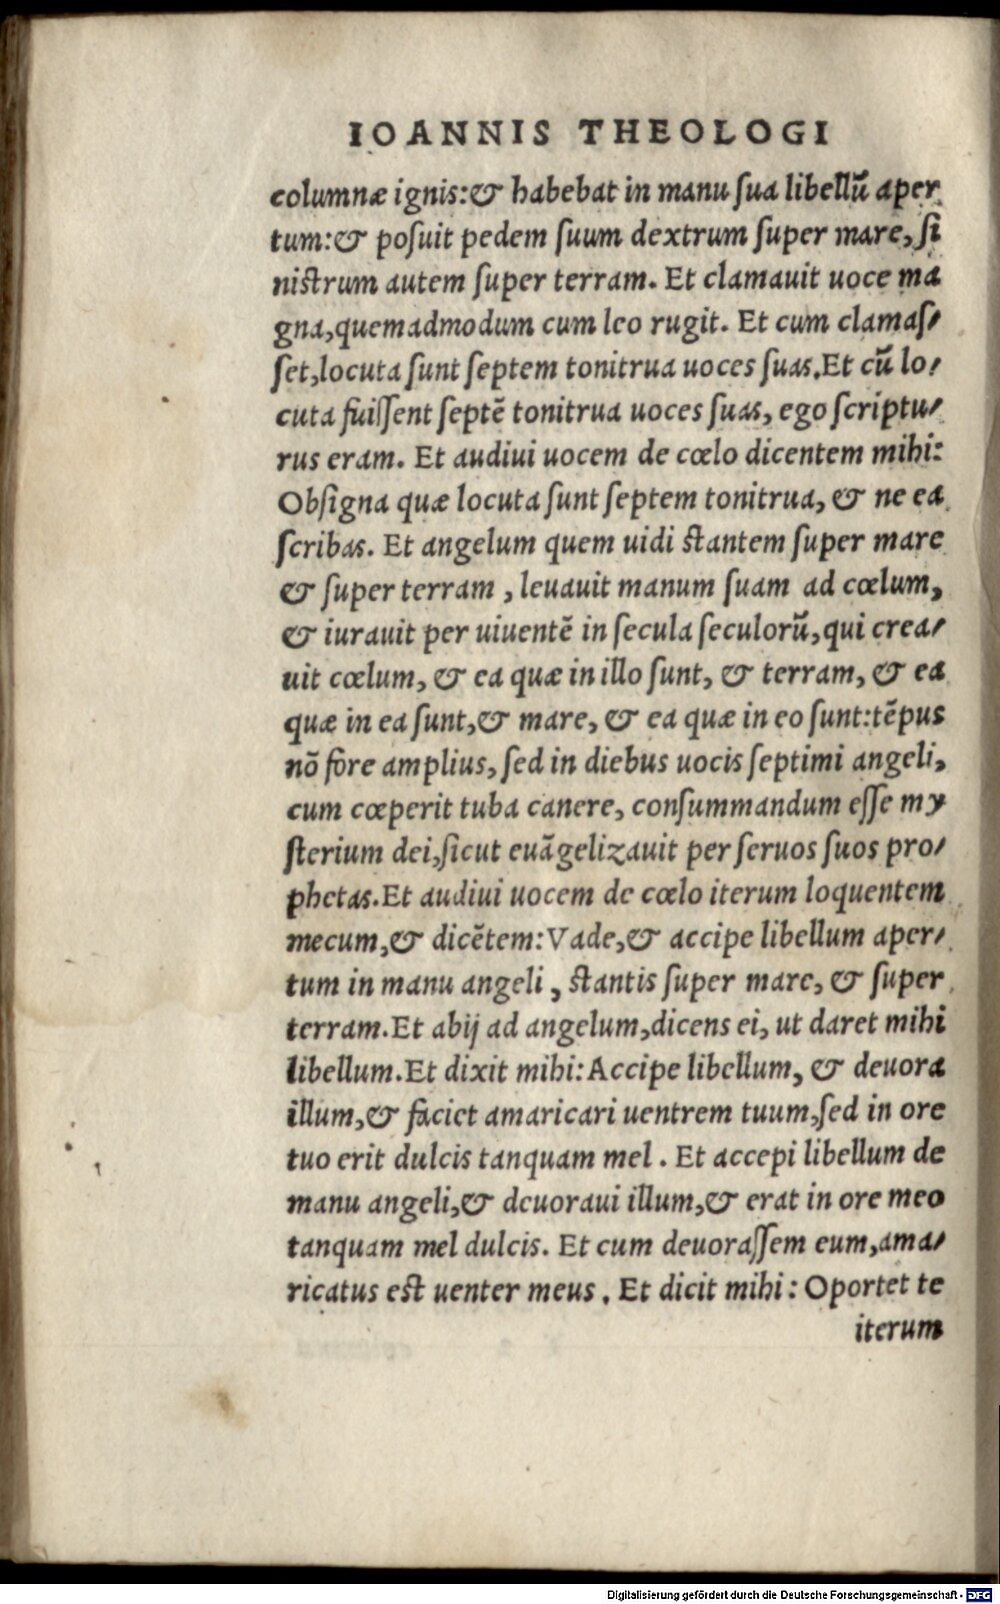 IOANNIS THEOLOGI
columnæ ignis:& habebat in manu ſua libellū aper
tum:& poſuit pedem ſuum dextrum ſuper mare, ſi
niſtrum autem ſuper terram. Et clamauit uoce ma
gna,quemadmodum cum leo rugit. Et cum clamaſ⸗
ſet,locuta ſunt ſeptem tonitrua uoces ſuas.Et cū lo⸗
cuta fuiſſent ſeptē tonitrua uoces ſuas, ego ſcriptu⸗
rus eram. Et audiui uocem de cœlo dicentem mihi:
Obſigna quæ locuta ſunt ſeptem tonitrua, & ne ea
ſcribas. Et angelum quem uidi ſtantem ſuper mare
& ſuper terram , leuauit manum ſuam ad cœlum,
& iurauit per uiuentē in ſecula ſeculorū,qui crea⸗
uit cœlum, & ea quæ in illo ſunt, & terram, & ea
quæ in ea ſunt,& mare, & ea quæ in eo ſunt:tēpus
nō fore amplius, ſed in diebus uocis ſeptimi angeli,
cum cœperit tuba canere, conſummandum eſſe my
ſterium dei,ſicut euāgelizauit per ſeruos ſuos pro⸗
phetas.Et audiui uocem de cœlo iterum loquentem
mecum,& dicētem:Vade,& accipe libellum aper⸗
tum in manu angeli , ſtantis ſuper mare, & ſuper
terram.Et abij ad angelum,dicens ei, ut daret mihi
libellum.Et dixit mihi:Accipe libellum, & deuora
illum,& faciet amaricari uentrem tuum,ſed in ore
tuo erit dulcis tanquam mel . Et accepi libellum de
manu angeli,& deuoraui illum,& erat in ore meo
tanquam mel dulcis. Et cum deuoraſſem eum,ama⸗
ricatus eſt uenter meus . Et dicit mihi : Oportet te
iterum
Digitalisierung gefördert durch die Deutsche Forschungsgemeinschaft - DFG